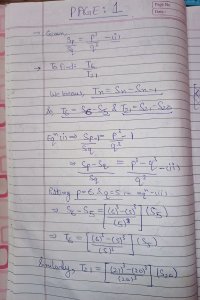 PAGE: 1
Page No
Date
→ Given
Sp/Sq = p³/q³ -(i)
→ To find = T6/T21
We know, Tn = Sn - Sn-1
So, T6 = S6 - S5 & T21 = S21 - S20
Eqⁿ(i) ⇒ Sp/Sq - 1 = p³/q³ - 1
⇒ (Sp - Sq)/Sq = (p³ - q³)/q³ -(ii)
Putting p=6, q=5 in eqⁿ -(ii)
⇒ S6 - S5 = [((6)³ - (5)³)/(5)³] (S5)
⇒ T6 = [((6)³ - (5)³)/(5)³] (S5)
Similarly, T21 = [((21)³ - (20)³)/(20)³] (S20)